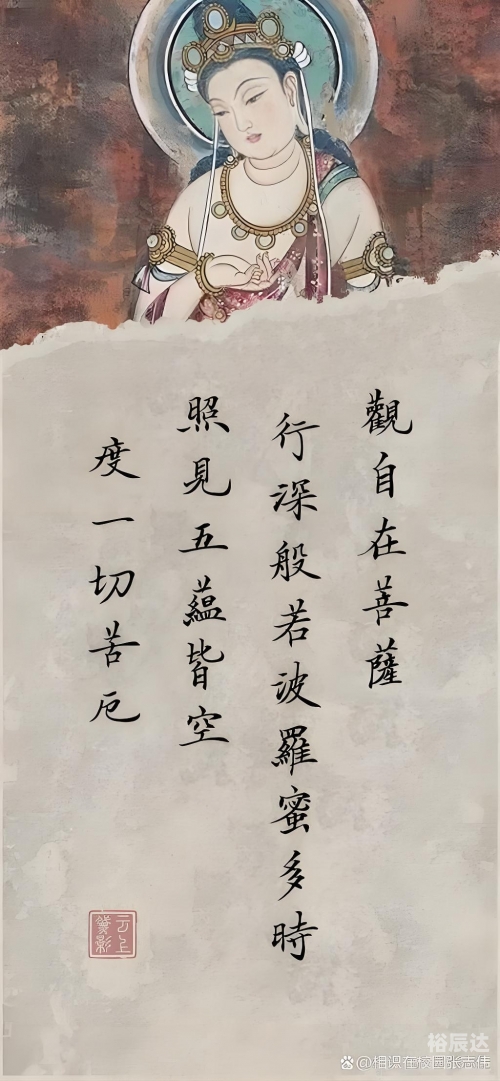 觀自在菩薩
行深般若波羅蜜多時
照見五蘊皆空
度一切苦厄
裕辰达
@相识在校园张志伟